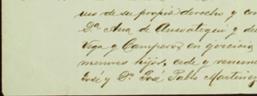 nes de su propio derecho y con
Dª Ana de Amoategui y de
Vega y Campero, en gerencia
menores hijos, cede y renun
José y Dⁿ José Pablo Martinez